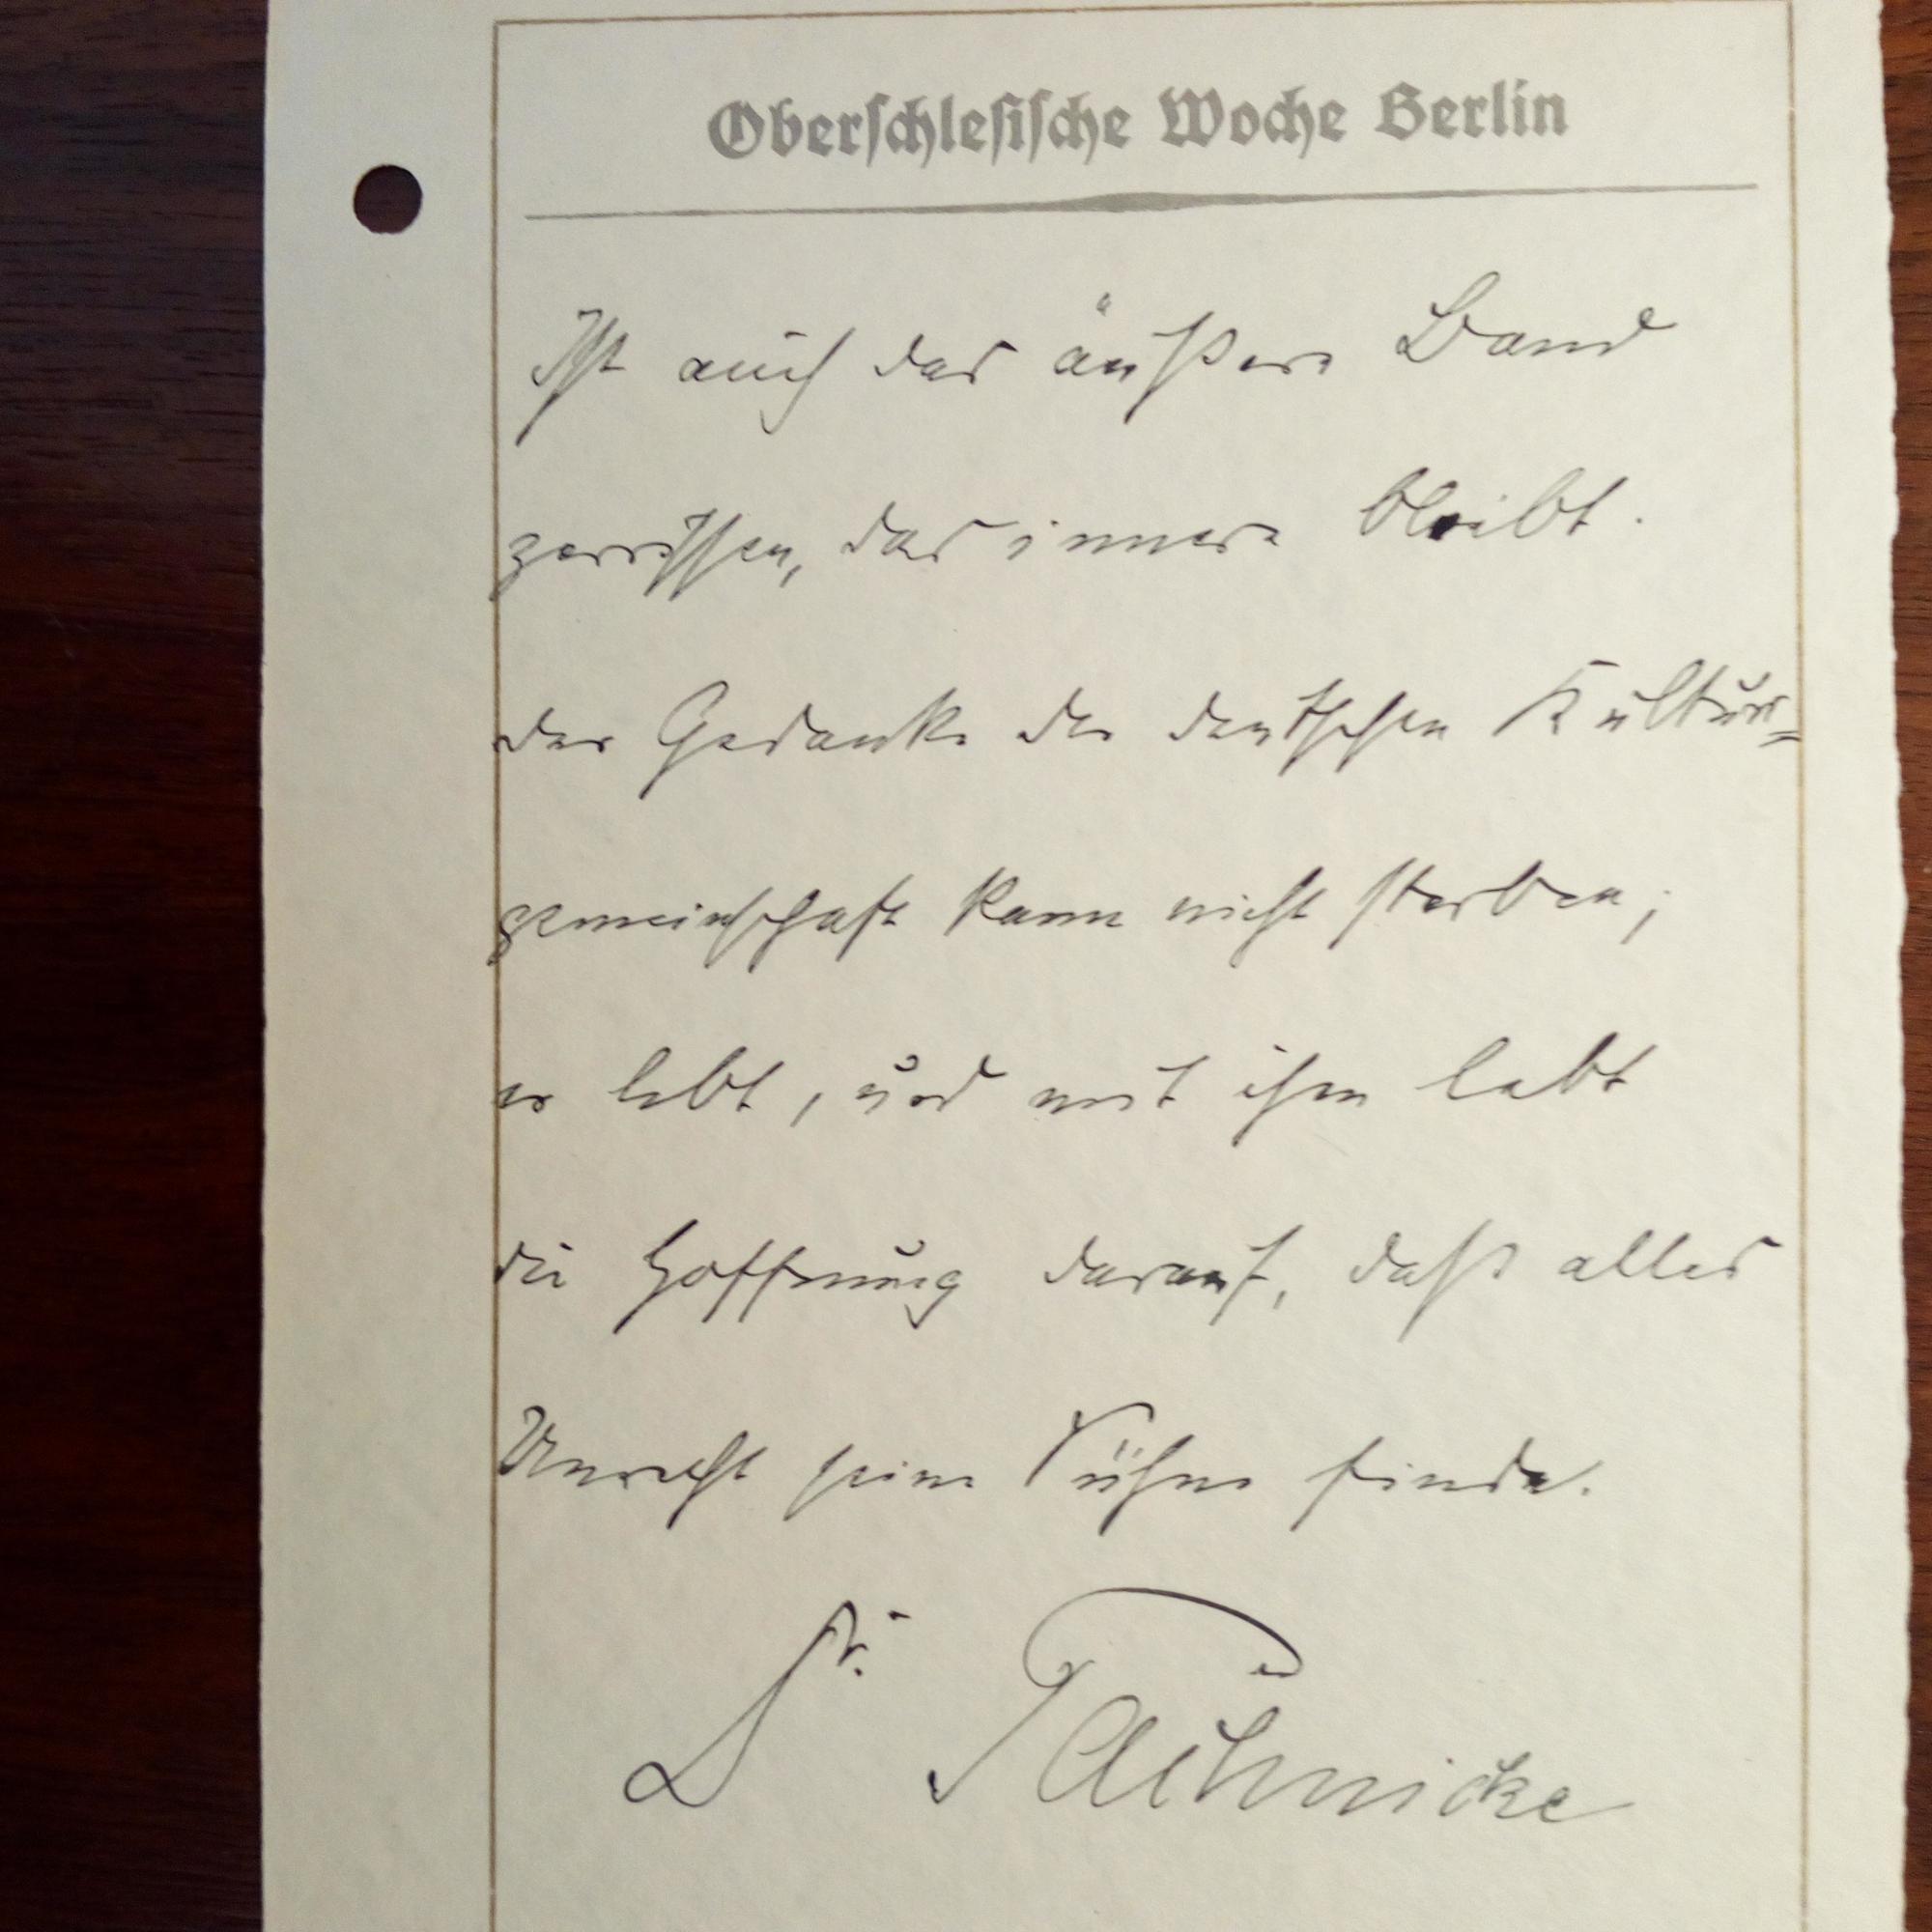 Oberschlesische Woche Berlin
Ist auch das äußere Band
zerrissen, das innere bleibt.
Der Gedanke der deutschen Kultur=
gemeinschaft kann nicht sterben;
er lebt, und mit ihm lebt
die Hoffnung darauf, daß alles
Unrecht seine Sühne finde.
Dr. Pachnicke